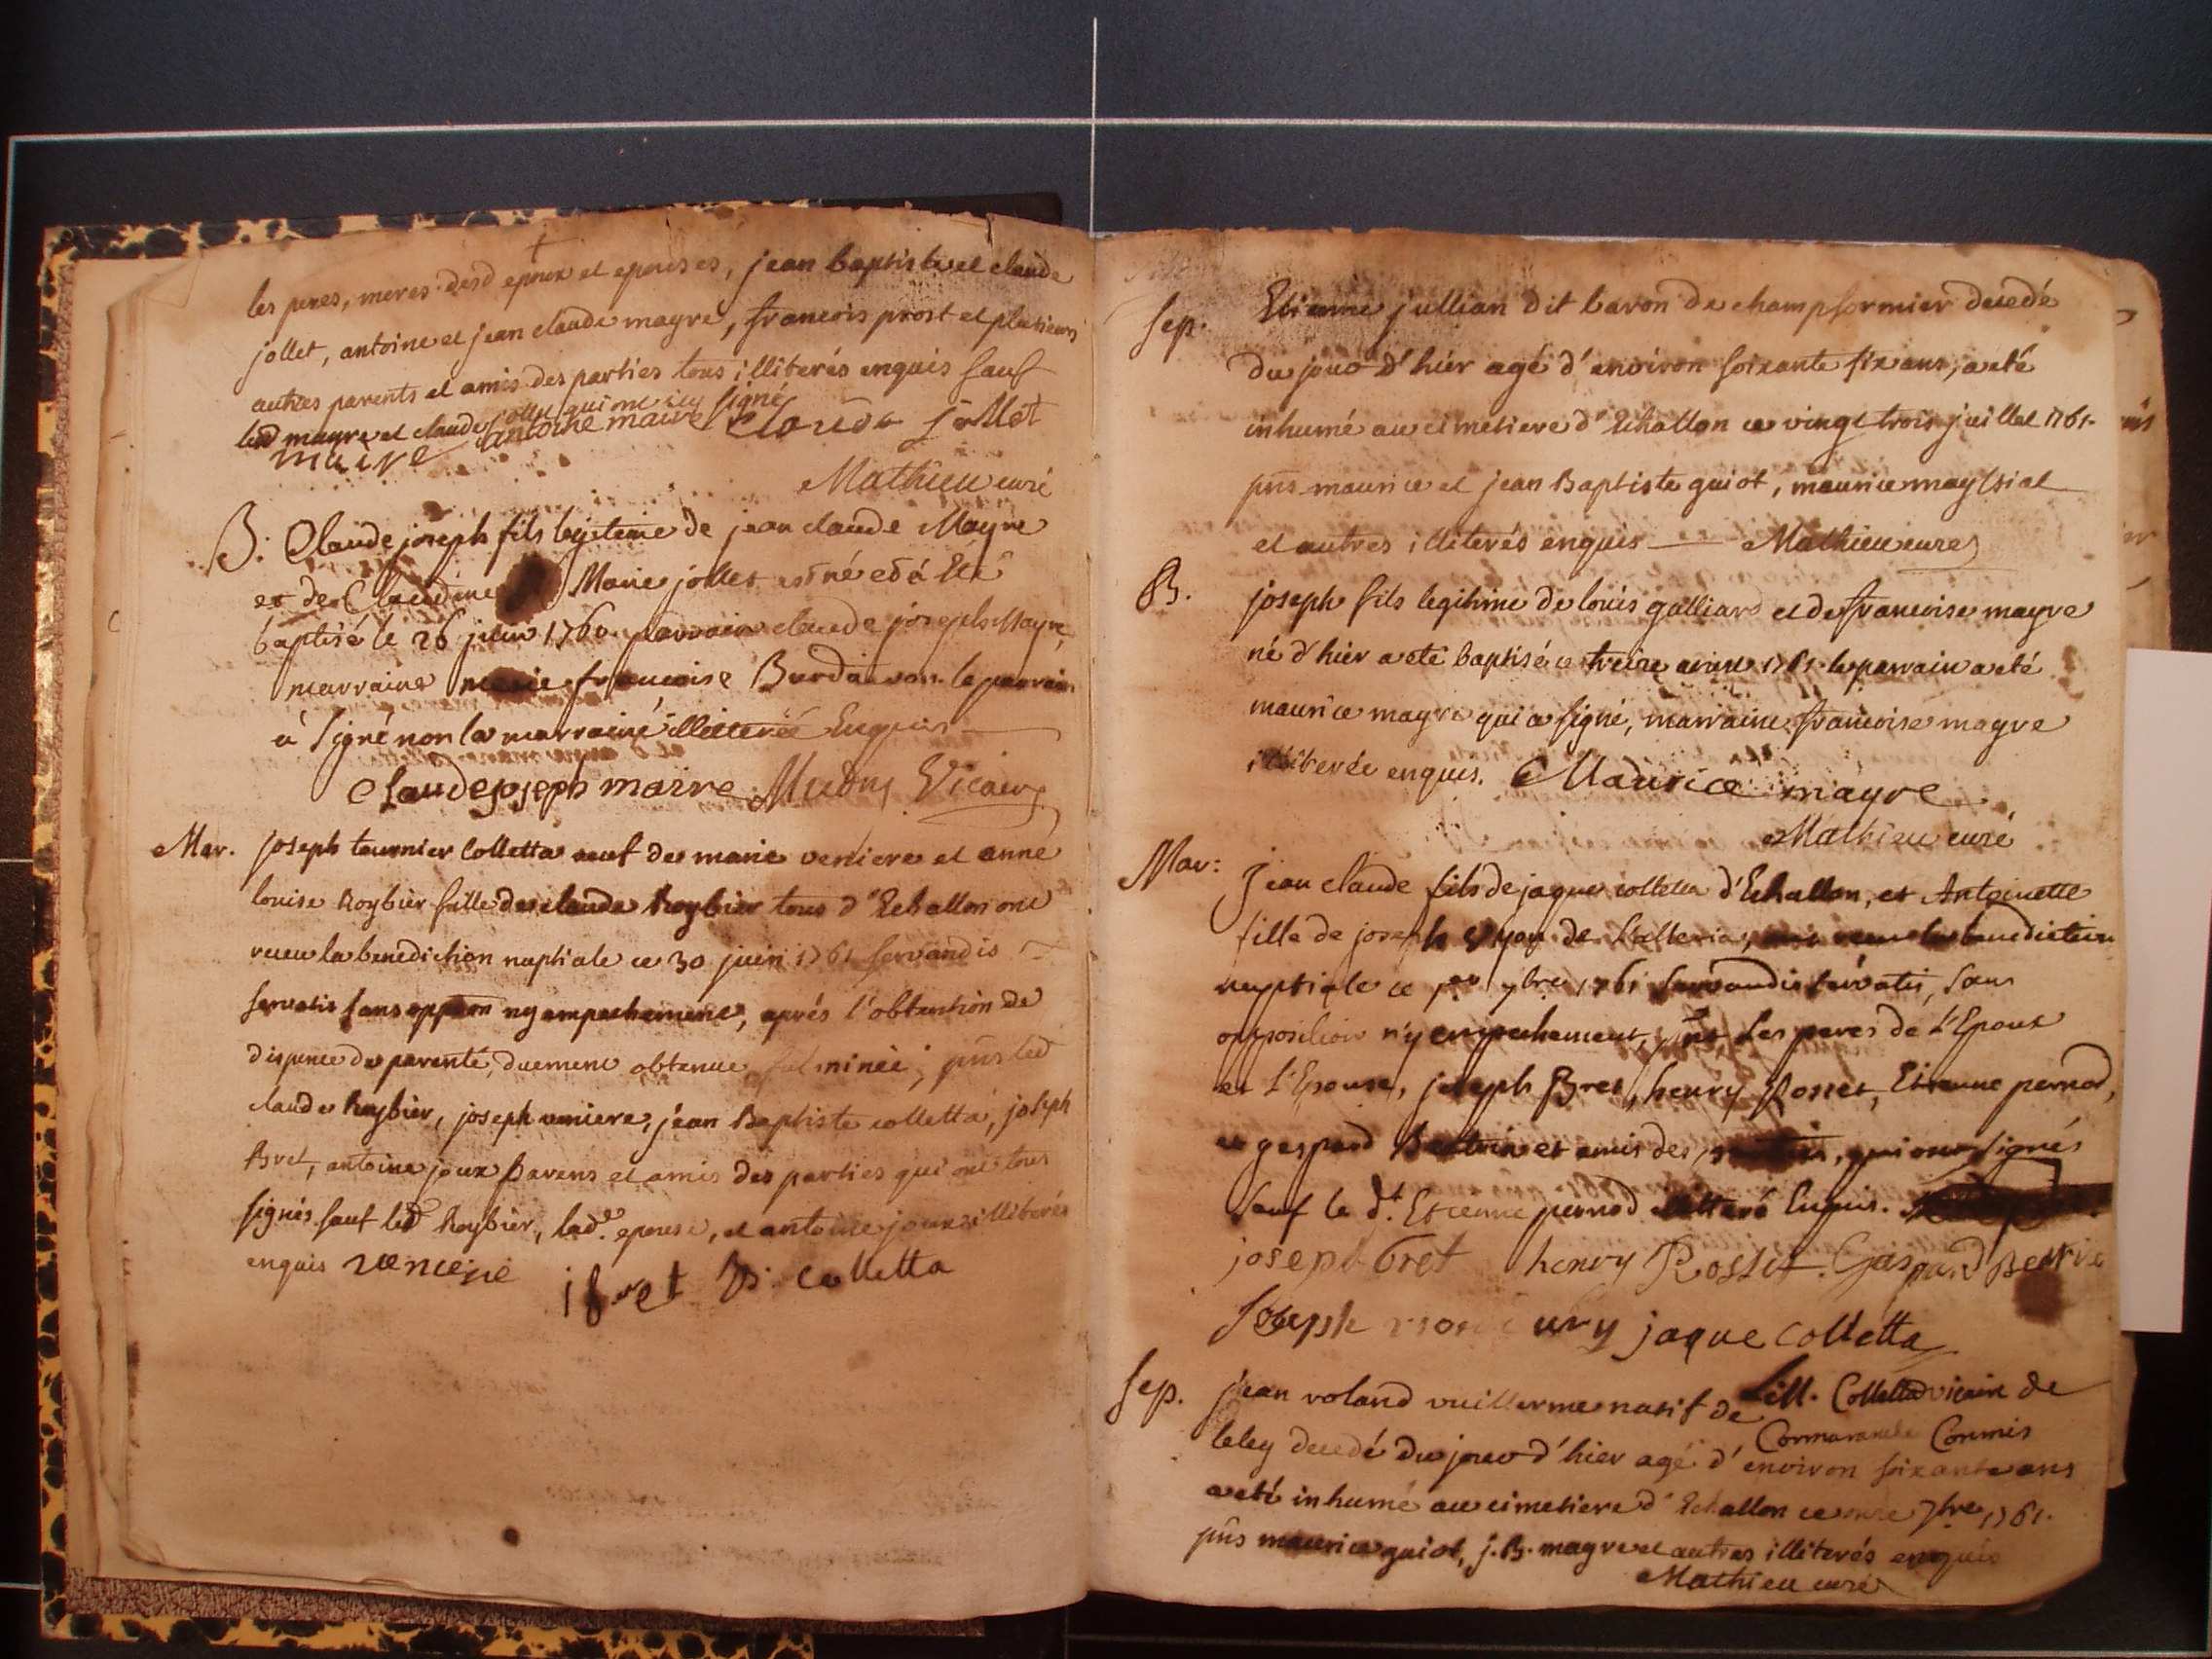 les peres, meres desd epoux et epouses, jean baptiste et claude
jollet, antoine et jean claude mayre, francois prost et plusieurs
autres parents et amis des parties tous illiterés enquis sauf
led mayre et claude jollet qui ont icy signé
maire antoine maire Claude jollet
Mathieu curé
B. Claude joseph fils legiteme de jean claude Mayre
et de Claudine Marie jollet est né et á Eté
baptisé le 26 juin 1760. parrain claude joseph Mayre,
marraine marie francoise Burdairon. le parrain
á signé non la marraine illitterée Enquis
Claude joseph maire Vicaire
Mar. joseph tournier Colletta veuf de marie veniere et anne
louise Roybier fille de claude Roybier tous d'Echallon ont
receu la benediction nuptiale ce 30 juin 1761 servandis
servatis sans oppõon ny empechement, aprés l'obtention de
dispence de parenté, duement obtenue fulminée; pñs led
claude Roybier, joseph veniere, jean Baptiste colletta, joseph
Bret, antoine joux parens et amis des parties qui ont tous
signés sauf led Roybier, lad.e epouse, et antoine joux illiterés
enquis veniere j bret B. colletta
Sep. Etienne jullian dit baron de champformier decedé
du jour d'hier agé d'environ soixante six ans, a eté
inhumé au cimetiere d'Echallon ce vingt trois juillet 1761.
pñs maurice et jean Baptiste guiot, maurice
et autres illiterés enquis Mathieu curé
B. joseph fils legitime de louis galliard et de francoise mayre
né d'hier a eté baptisé ce treize 1761. le parrain a eté
maurice mayre qui a signé, marraine francoise mayre
illiterée enquis. Maurice mayre
Mathieu curé
Mar: Jean claude fils de jaque colletta d'Echallon, et Antoinette
fille de joseph de ont receu la benediction
nuptiale ce per 7bre 1761 servandis servatis, sans
opposition n'y empechement, pñts les peres de l'Epoux
et l'Epouse, joseph Bret, henry Rosset, Etienne pernod,
et gaspard et amis des parties, qui ont signés
sauf le d.t Etienne pernod illitteré Enquis.
joseph bret henry Rosset Gaspard
Joseph jaque Colletta
Sep. jean roland vuillerme natif de Colletta vicaire de
Cormaranche Commis
leley decedé du jour d'hier agé d'environ soixante ans
a eté inhumé au cimetiere d'Echallon ce onze 7bre 1761.
pñs maurice guiot, j.B. mayre et autres illiterés enquis
Mathieu curé